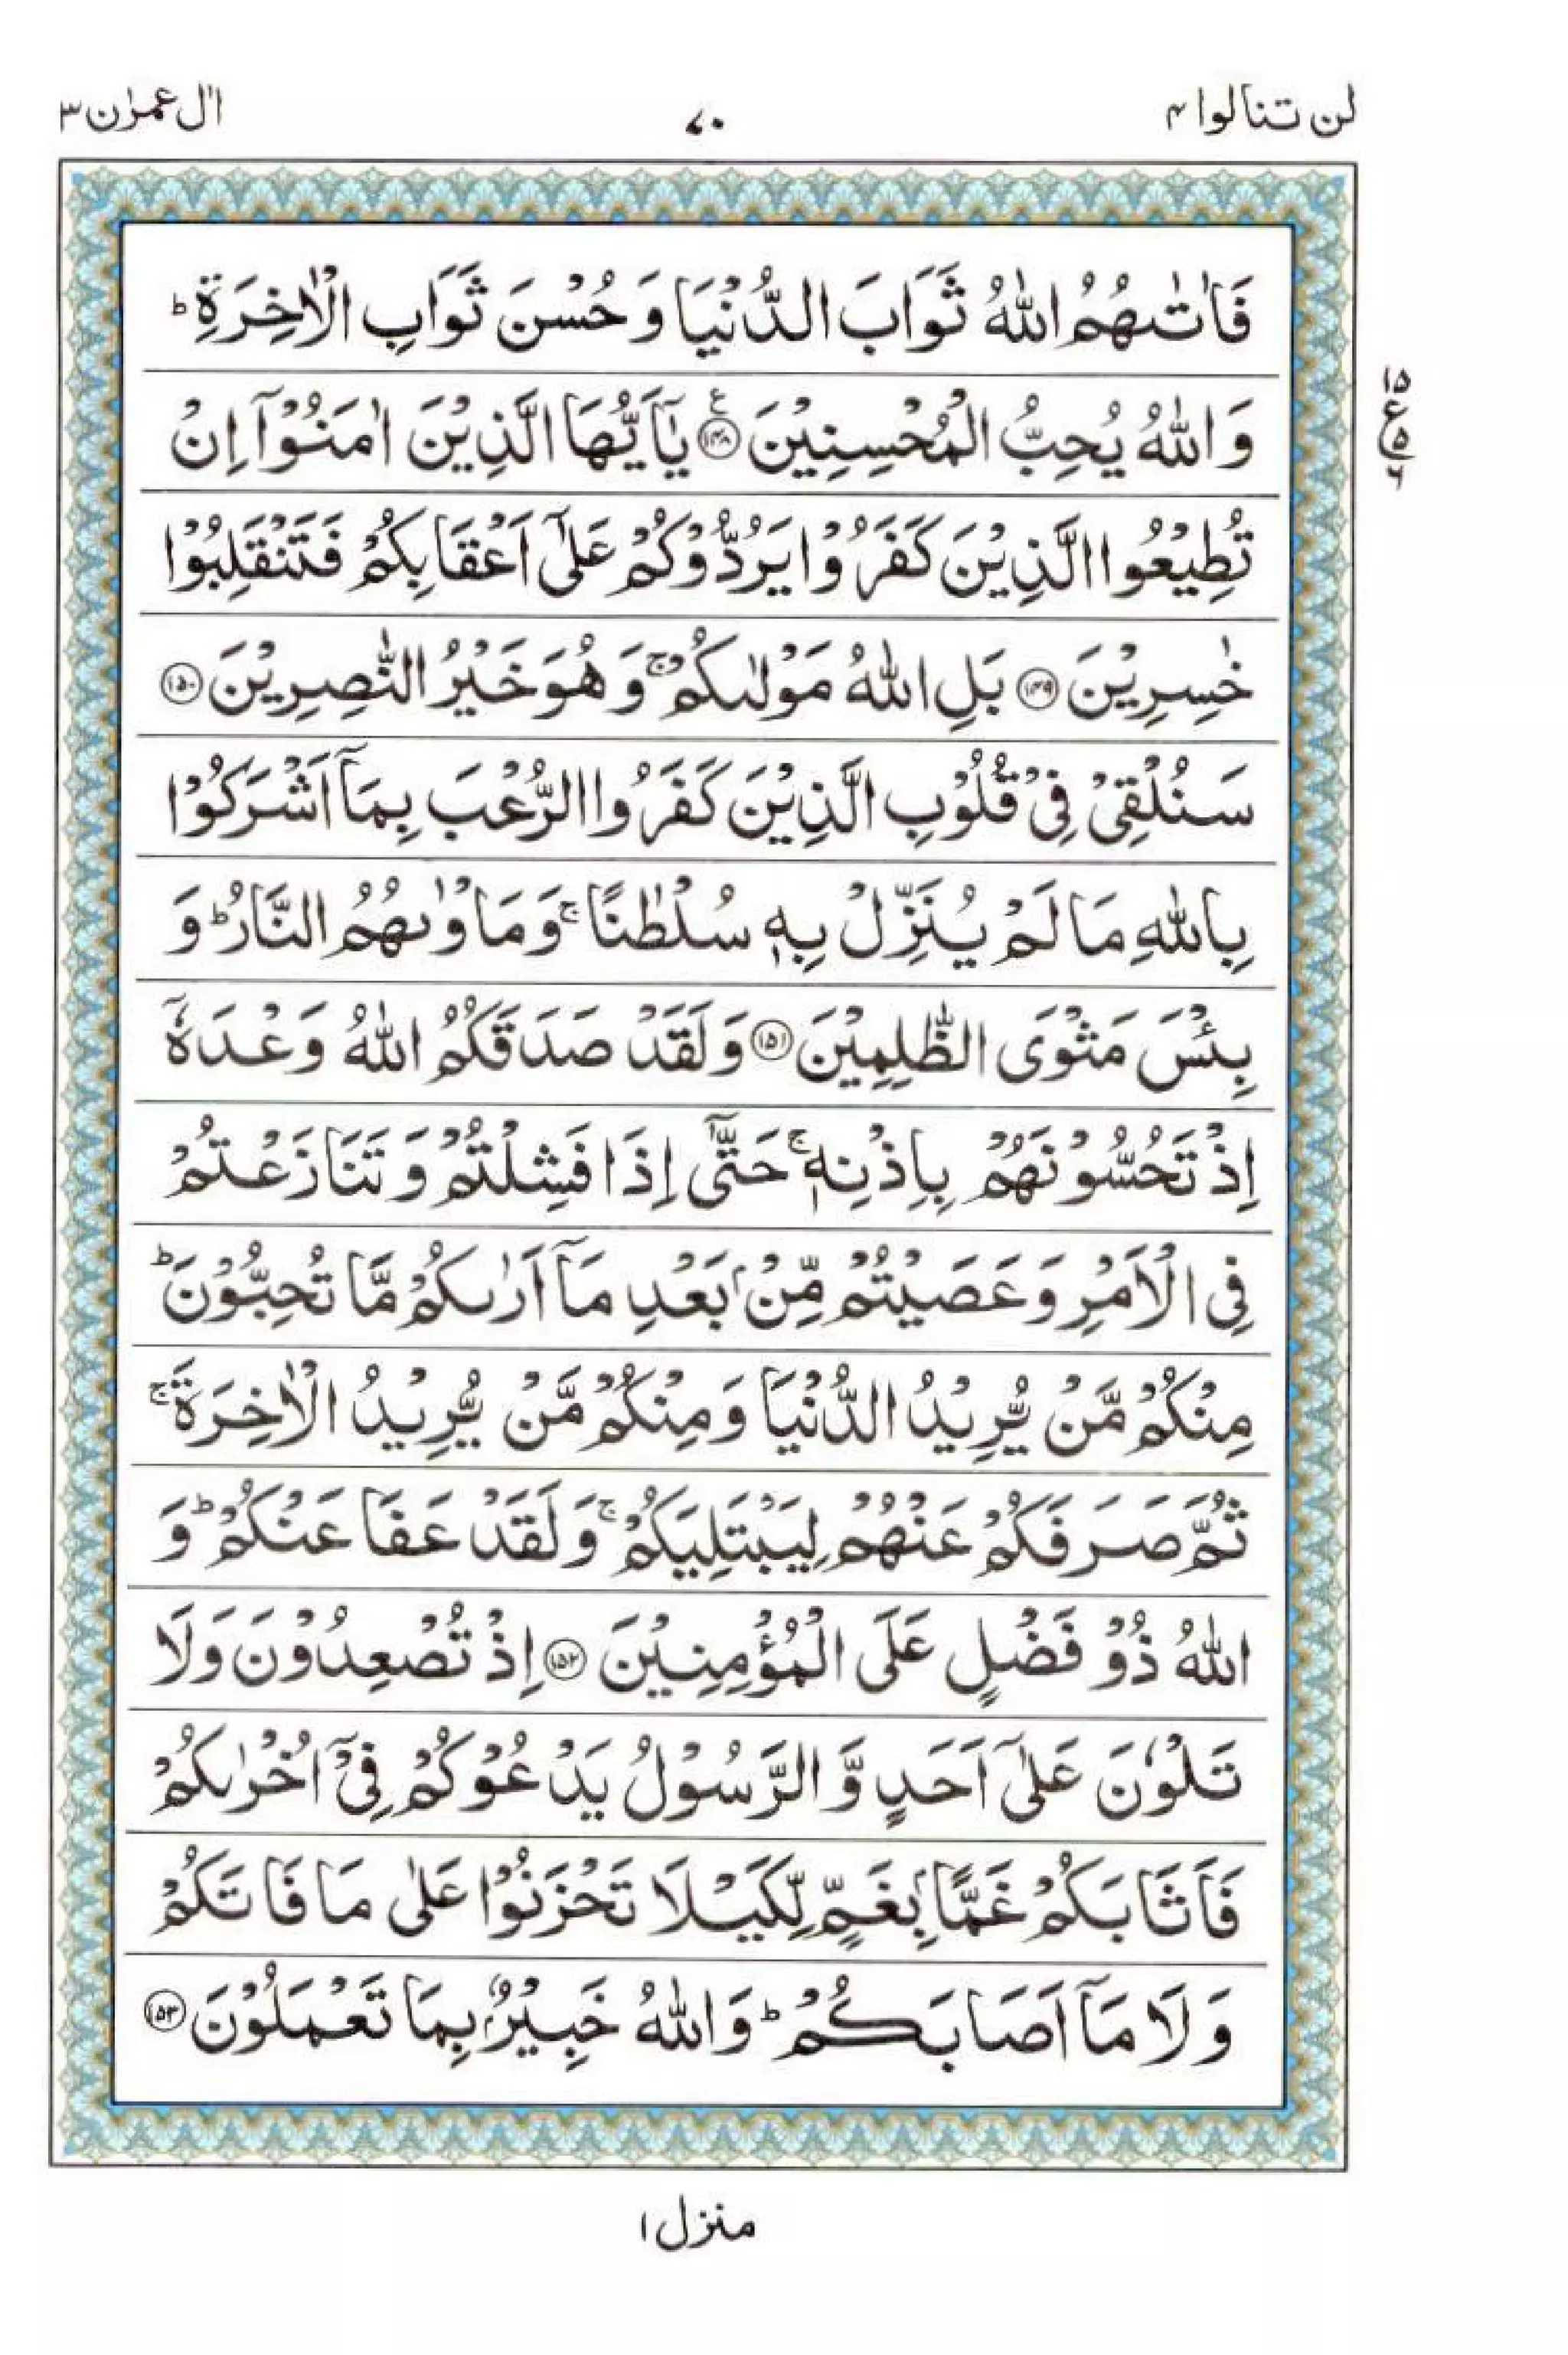 لن تنالوا ۴
۷۰
اٰل عمرٰن ۳
فَاٰتٰىهُمُ اللّٰهُ ثَوَابَ الدُّنْيَا وَ حُسْنَ ثَوَابِ الْاٰخِرَةِ ؕ
وَ اللّٰهُ يُحِبُّ الْمُحْسِنِيْنَ ﴿۱۴۸﴾ ع يٰۤاَيُّهَا الَّذِيْنَ اٰمَنُوْۤا اِنْ
۱۵
ع
۵
۶
تُطِيْعُوا الَّذِيْنَ كَفَرُوْا يَرُدُّوْكُمْ عَلٰۤى اَعْقَابِكُمْ فَتَنْقَلِبُوْا
خٰسِرِيْنَ ﴿۱۴۹﴾ بَلِ اللّٰهُ مَوْلٰىكُمْ ۚ وَ هُوَ خَيْرُ النّٰصِرِيْنَ ﴿۱۵۰﴾
سَنُلْقِيْ فِيْ قُلُوْبِ الَّذِيْنَ كَفَرُوا الرُّعْبَ بِمَاۤ اَشْرَكُوْا
بِاللّٰهِ مَا لَمْ يُنَزِّلْ بِهٖ سُلْطٰنًا ۚ وَ مَاْوٰىهُمُ النَّارُ ؕ وَ
بِئْسَ مَثْوَى الظّٰلِمِيْنَ ﴿۱۵۱﴾ وَ لَقَدْ صَدَقَكُمُ اللّٰهُ وَعْدَهٗۤ
اِذْ تَحُسُّوْنَهُمْ بِاِذْنِهٖ ۚ حَتّٰۤى اِذَا فَشِلْتُمْ وَ تَنَازَعْتُمْ
فِي الْاَمْرِ وَ عَصَيْتُمْ مِّنْۢ بَعْدِ مَاۤ اَرٰىكُمْ مَّا تُحِبُّوْنَ ؕ
مِنْكُمْ مَّنْ يُّرِيْدُ الدُّنْيَا وَ مِنْكُمْ مَّنْ يُّرِيْدُ الْاٰخِرَةَ ۚ
ثُمَّ صَرَفَكُمْ عَنْهُمْ لِيَبْتَلِيَكُمْ ۚ وَ لَقَدْ عَفَا عَنْكُمْ ؕ وَ
اللّٰهُ ذُوْ فَضْلٍ عَلَى الْمُؤْمِنِيْنَ ﴿۱۵۲﴾ اِذْ تُصْعِدُوْنَ وَ لَا
تَلْوٗنَ عَلٰۤى اَحَدٍ وَّ الرَّسُوْلُ يَدْعُوْكُمْ فِيْۤ اُخْرٰىكُمْ
فَاَثَابَكُمْ غَمًّۢا بِغَمٍّ لِّكَيْلَا تَحْزَنُوْا عَلٰى مَا فَاتَكُمْ
وَ لَا مَاۤ اَصَابَكُمْ ؕ وَ اللّٰهُ خَبِيْرٌۢ بِمَا تَعْمَلُوْنَ ﴿۱۵۳﴾
منزل ۱